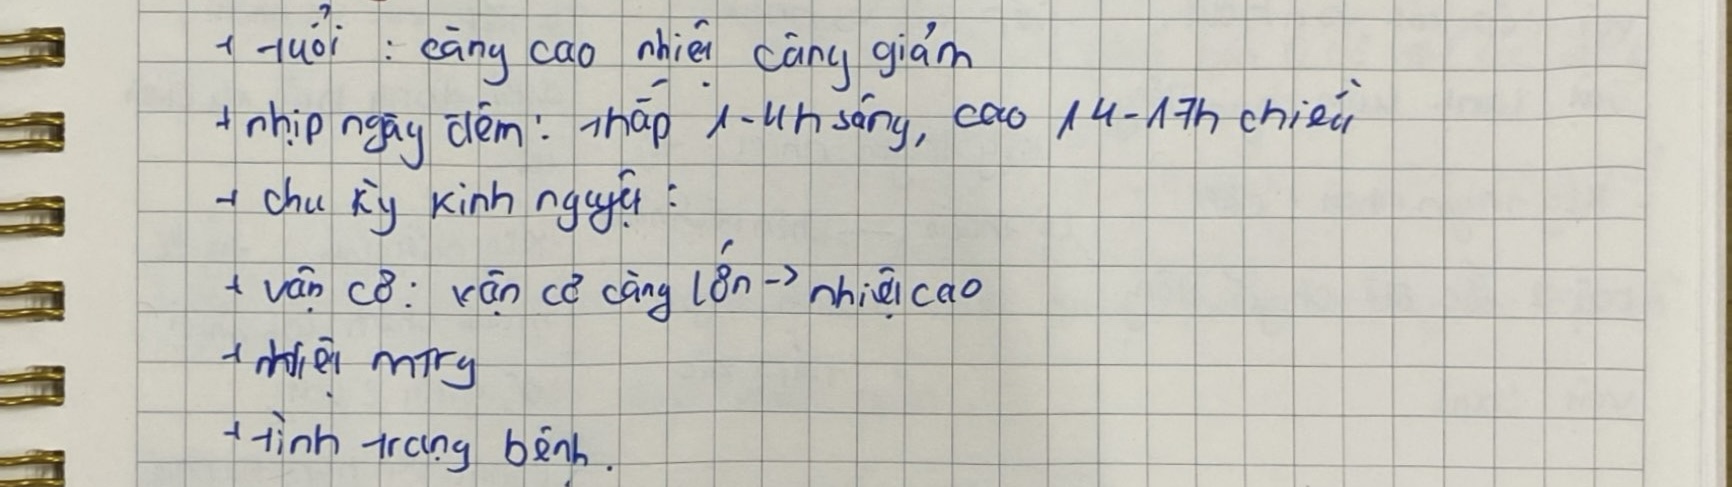 + tuổi : càng cao nhiệt càng giảm
+ nhịp ngày đêm : thấp 1-4h sáng, cao 14-17h chiều
+ chu kỳ kinh nguyệt :
+ vận cơ : vận cơ càng lớn -> nhiệt cao
+ nhiệt mtrg
+ tình trạng bệnh.